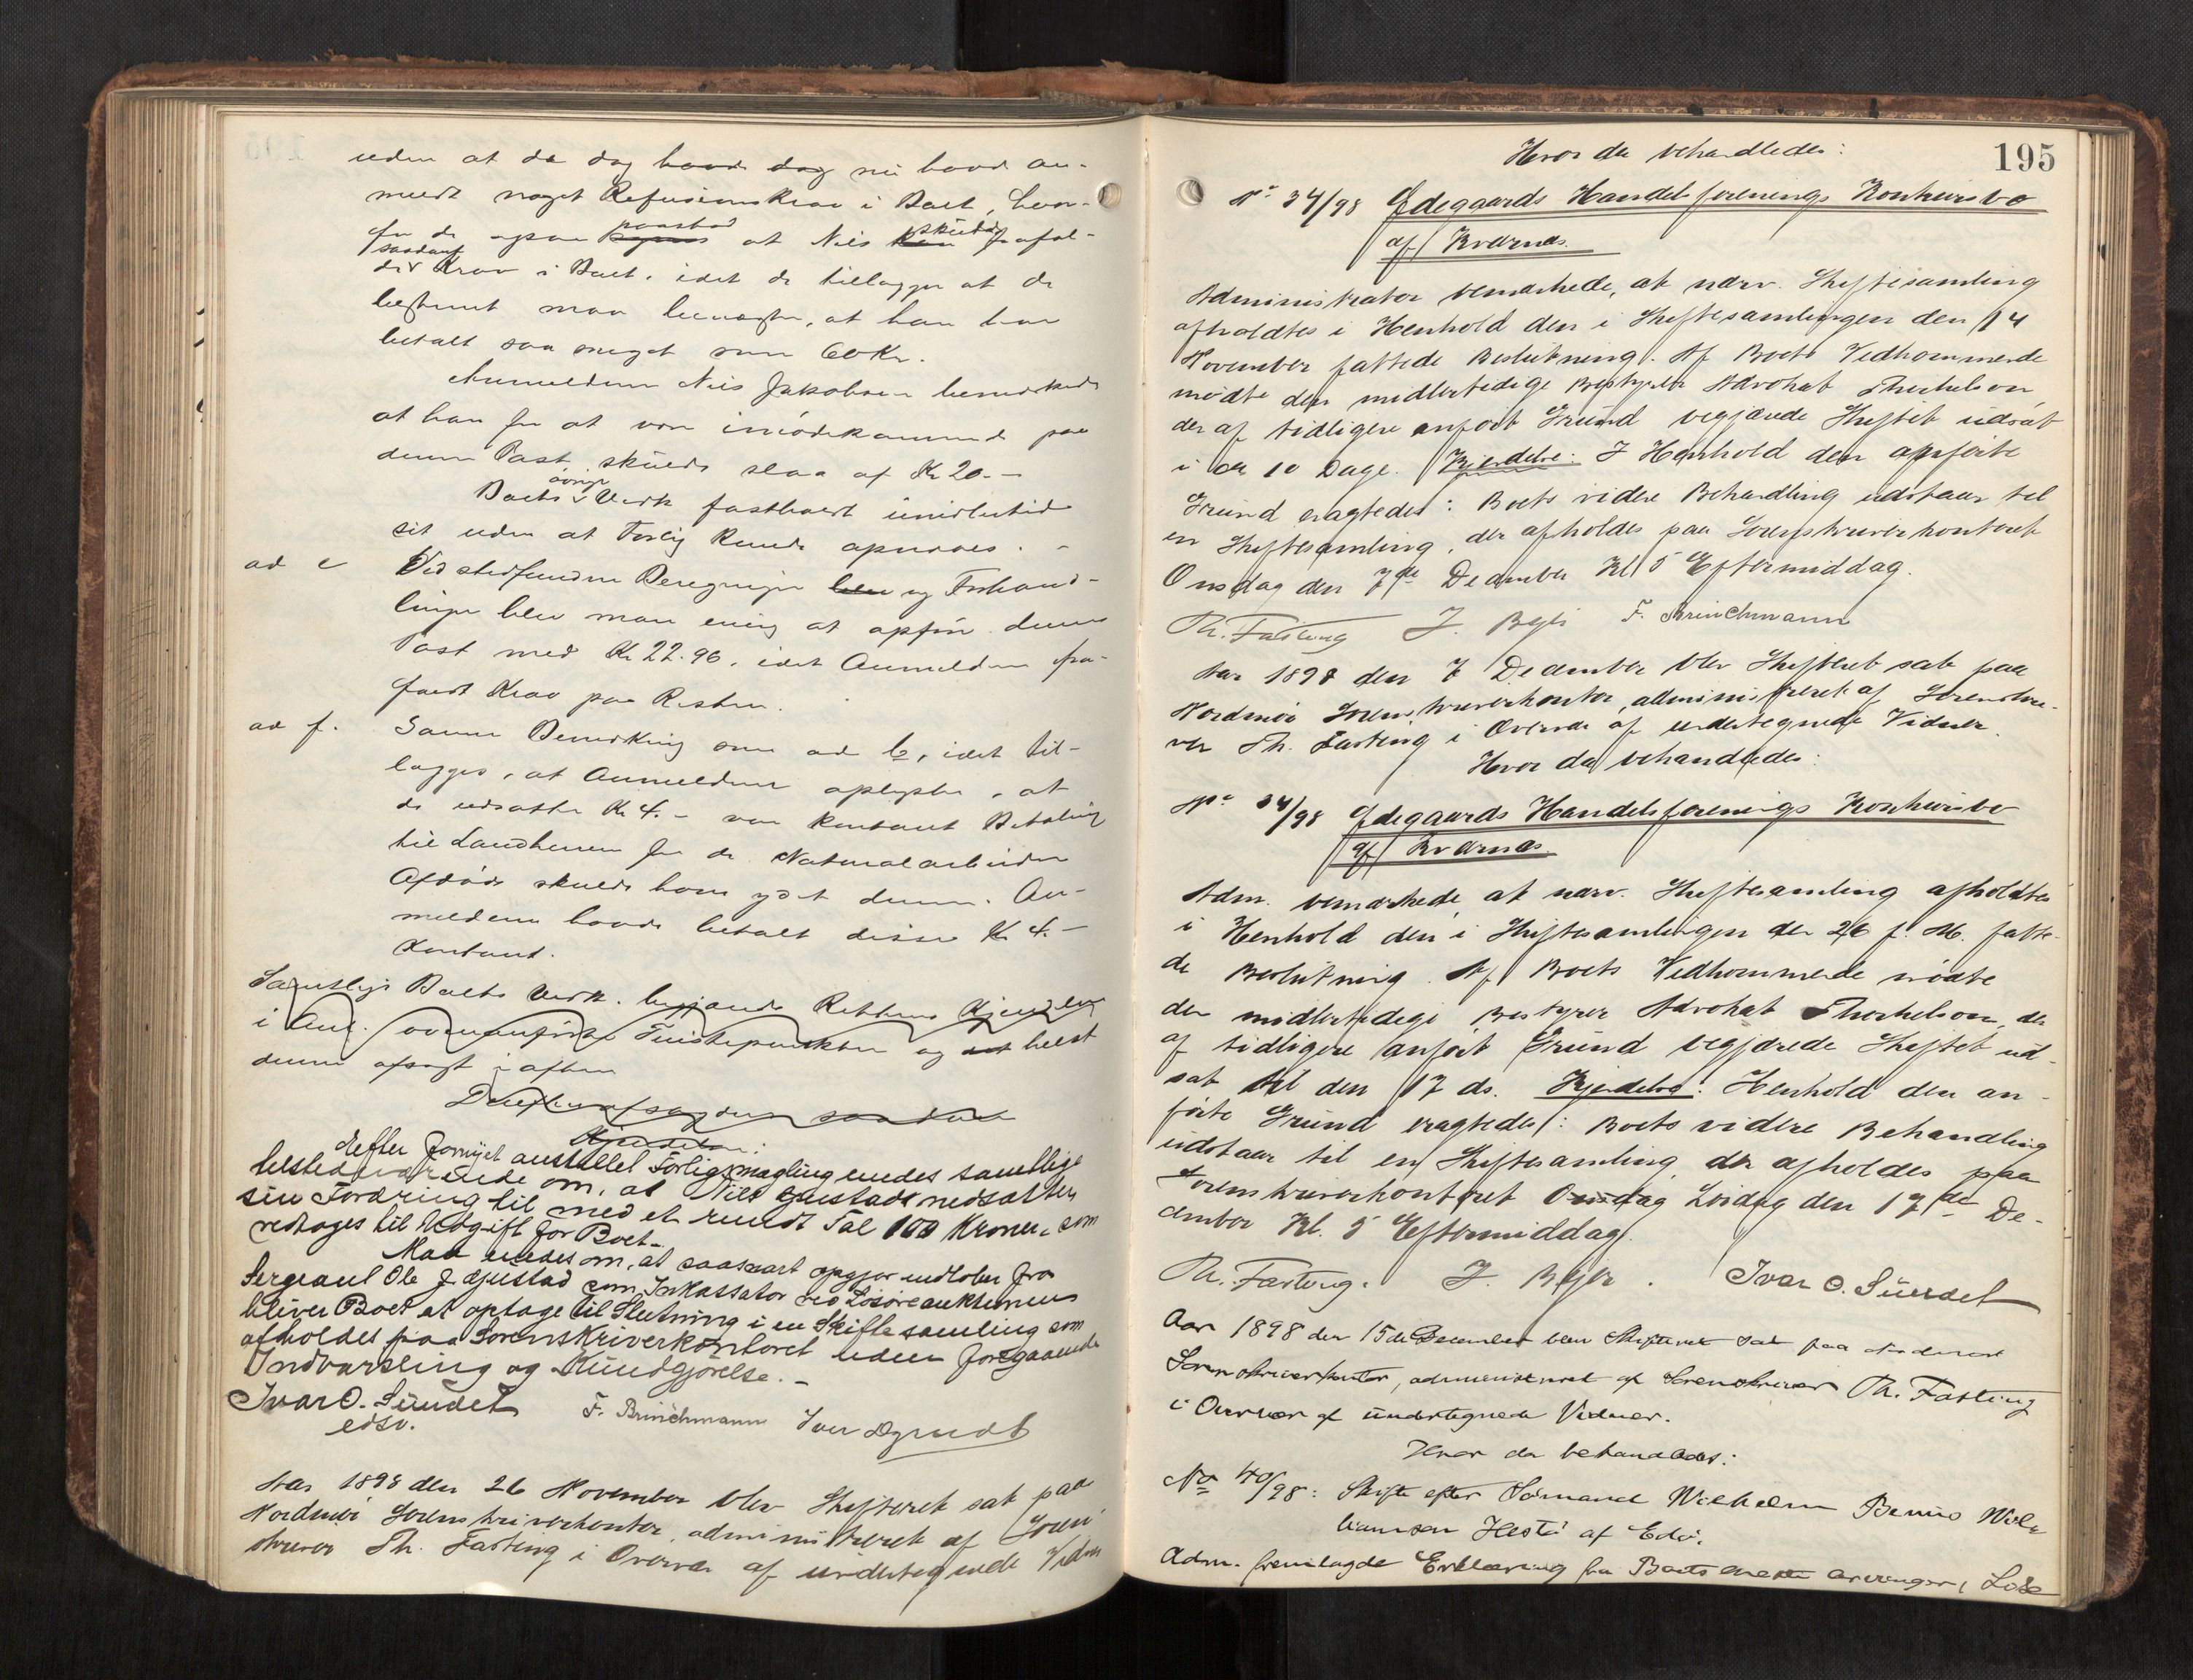 uden at da dog havde dog nu havd an-
meldt noget Refusionskrav i Boet, hvor-
for de ogsaa paastod at Nils skulde frafal-
de saadant Krav i Boet, idet de tillægger at de
bestemt maa benægte, at han har
betalt saa meget som 60 Kr.
Anmelderen Nils Jakobsen bemærkede
at han for at være imødekommende paa
denne Post, skulde slaa af Kr 20.-
Boets øvrige Vedk fastholdt imidlertid
sit uden at Forlig kunde opnaaes. -
ad e Ved stedfundne Beregninger blev og Forhand-
linger blev man enig at opføre denne
Post med Kr 22.96, idet Anmelderen fra-
faldt Krav paa Resten.
ad f. Samme Bemærkning som ad b, idet til-
lægges, at Anmelderen oplyste, at
de udsatte Kr 4.- var kontant Betaling
til Landherren for de Naturalarbeider
Afdøde skulde have ydet denne. An-
melderen havde betalt disse Kr 4.-
kontant.
Samtlige Boets Vedk. begjærede Rettens Kjendelse
i Anl. ovenanførte Tvistepunkter og det helst
denne afsagt i aften
Kjendelse:
Efter fornyet anstillet Forligsmægling enedes samtlige
tilstedeværende om, at Nils Gjustads nedsatter
sin Fordring til med et rundt Tal 100 Kroner, som
vedtages til Udgift for Boet.
Man enedes om, at saasnart opgjør indløber fra
Sergeant Ole J. Gjustad som Inkassator ved Løsøreauktionen
bliver Boet at optage til Slutning i en Skiftesamling som
afholdes paa Sorenskriverkontoret uden foregaaende
Indvarsling og Kundgjørelse. -
Ivar O. Sundet F. Brinchmann Iver Øgrudt
edsv.
Aar 1898 den 26 November blev Skifteret sat paa
Nordmøre Sorenskriverkontor, administreret af Soren-
skriver Th. Fasting i Overvær af undertegnede Vidner
195
Hvor da behandledes:
No 34/98 Ødegaards Handelsforenings Konkursbo
af Kværnæs.
Administrator bemærkede, at nærv. Skiftesamling
afholdtes i Henhold den i Skiftesamlingen den 14
November fattede Beslutning. Af Boets Vedkommende
mødte den midlertidige Bestyrer Advokat Thorkelson,
der af tidligere anført Grund begjærede Skiftet udsat
i ca 10 Dage. Kjendelse: I Henhold den anførte
Grund eragtedes: Boets videre Behandling udstaar til
en Skiftesamling, der afholdes paa Sorenskriverkontoret
Onsdag den 7de December Kl 5 Eftermiddag.
Th. Fasting J. Bejer F. Brinchmann
Aar 1898 den 7 December blev Skifteret sat paa
Nordmøre Sorenskriverkontor, administreret af Sorenskri-
ver Th. Fasting i Overvær af undertegnede Vidner.
Hvor da behandledes:
No 34/98 Ødegaards Handelsforenings Konkursbo
af Kværnæs.
Adm. bemærkede, at nærv. Skiftesamling afholdtes
i Henhold den i Skiftesamlingen den 26 f. M. fatte-
de Beslutning. Af Boets Vedkommende mødte
den midlertidige Bestyrer Advokat Thorkelson, der
af tidligere anført Grund begjærede Skiftet ud-
sat til den 17 ds. Kjendelse: Henhold den an-
førte Grund eragtedes: Boets videre Behandling
udstaar til en Skiftesamling der afholdes paa
Sorenskriverkontoret Onsdag Lørdag den 17de De-
cember Kl. 5 Eftermiddag.
Th. Fasting. J. Bejer. Ivar O. Sundet
Aar 1898 den 15de December blev Skifteret sat paa Nordmøre
Sorenskriverkontor, administreret af Sorenskriver Th. Fasting
i Overvær af undertegnede Vidner.
Hvor da behandledes:
No 40/98: Skifte efter Sømand Wilhelm Benius Wil-
helmsen Hestø af Edø.
Adm. fremlagde Erklæring fra Boets eneste Arvinger, Lods